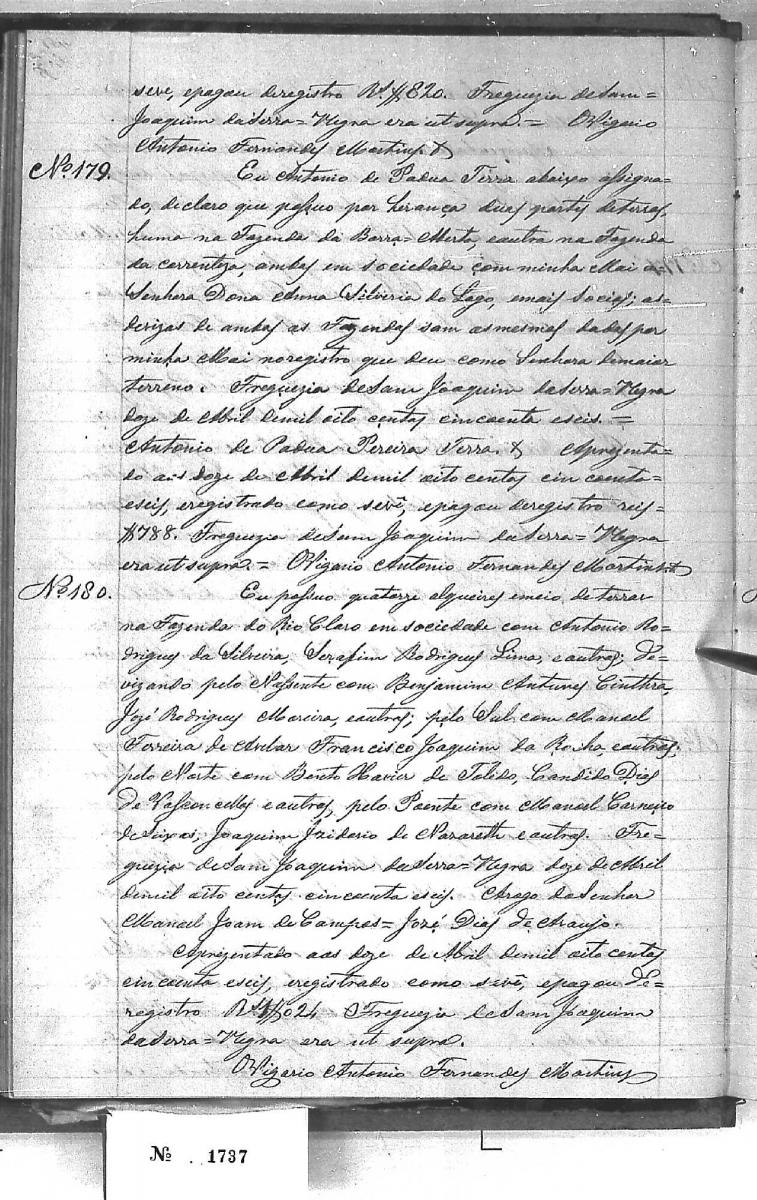 sevê, epagou deregistro Rs$820. Freguezia deSam=
Joaquim daSerra=Negra era ut supra.= OVigario
Antonio Fernandes Martins.
No.179.
Eu Antonio de Padua Terra abaixo assigna=
do, declaro que possuo por herança duas partes deterras,
huma na Fazenda da Barra=Morta, eoutra na Fazenda
da correnteza, ambas em sociedade com minha Mai a
Senhora Dona Anna Silveria do Lago, emais Socios; as=
devizas de ambas as Fazendas sam asmesmas dadas por
minha Mai noregistro que deu como Senhora demaior
terreno. Freguezia deSam Joaquim daSerra=Negra
doze de Abril demil oito centos cincoenta eseis.=
Antonio de Padua Pereira Terra. Aprezenta=
do aos doze de Abril demil oito centos cincoenta=
eseis, eregistrado como sevê, epagou deregistro reis=
$788. Freguezia deSam Joaquim daSerra=Negra
era ut supra.= OVigario Antonio Fernandes Martins
No.180.
Eu possuo quatorze alqueires emeio deterras
na Fazenda do Rio Claro em sociedade com Antonio Ro=
drigues da Silveira, Serafim Rodrigues Lima, eoutros; de=
vizando pelo Nassente com Benjamim Antunes Cinthra,
Jozé Rodrigues Moreira, eoutros; pelo Sul com Manoel
Ferreira de Avelar Francisco Joaquim da Rocha, eoutros;
pelo Norte com Bento Xavier de Tolêdo, Candido Dias
de Vasconcellos eoutros, pelo Poente com Manoel Carneiro
deSeixas, Joaquim Izidorio de Nazareth eoutros. Fre=
guezia deSam Joaquim daSerra=Negra doze de Abril
demil oito centos cincoenta eseis. Arogo doSenhor
Manoel Joam de Campos= Jozé Dias de Araujo.
Aprezentado aos doze de Abril demil oito centos
cincoenta eseis, eregistrado como sevê, epagou de=
registro Rs1$024 Freguezia deSam Joaquim
daSerra=Negra era ut supra.
OVigario Antonio Fernandes Martins
No. 1737